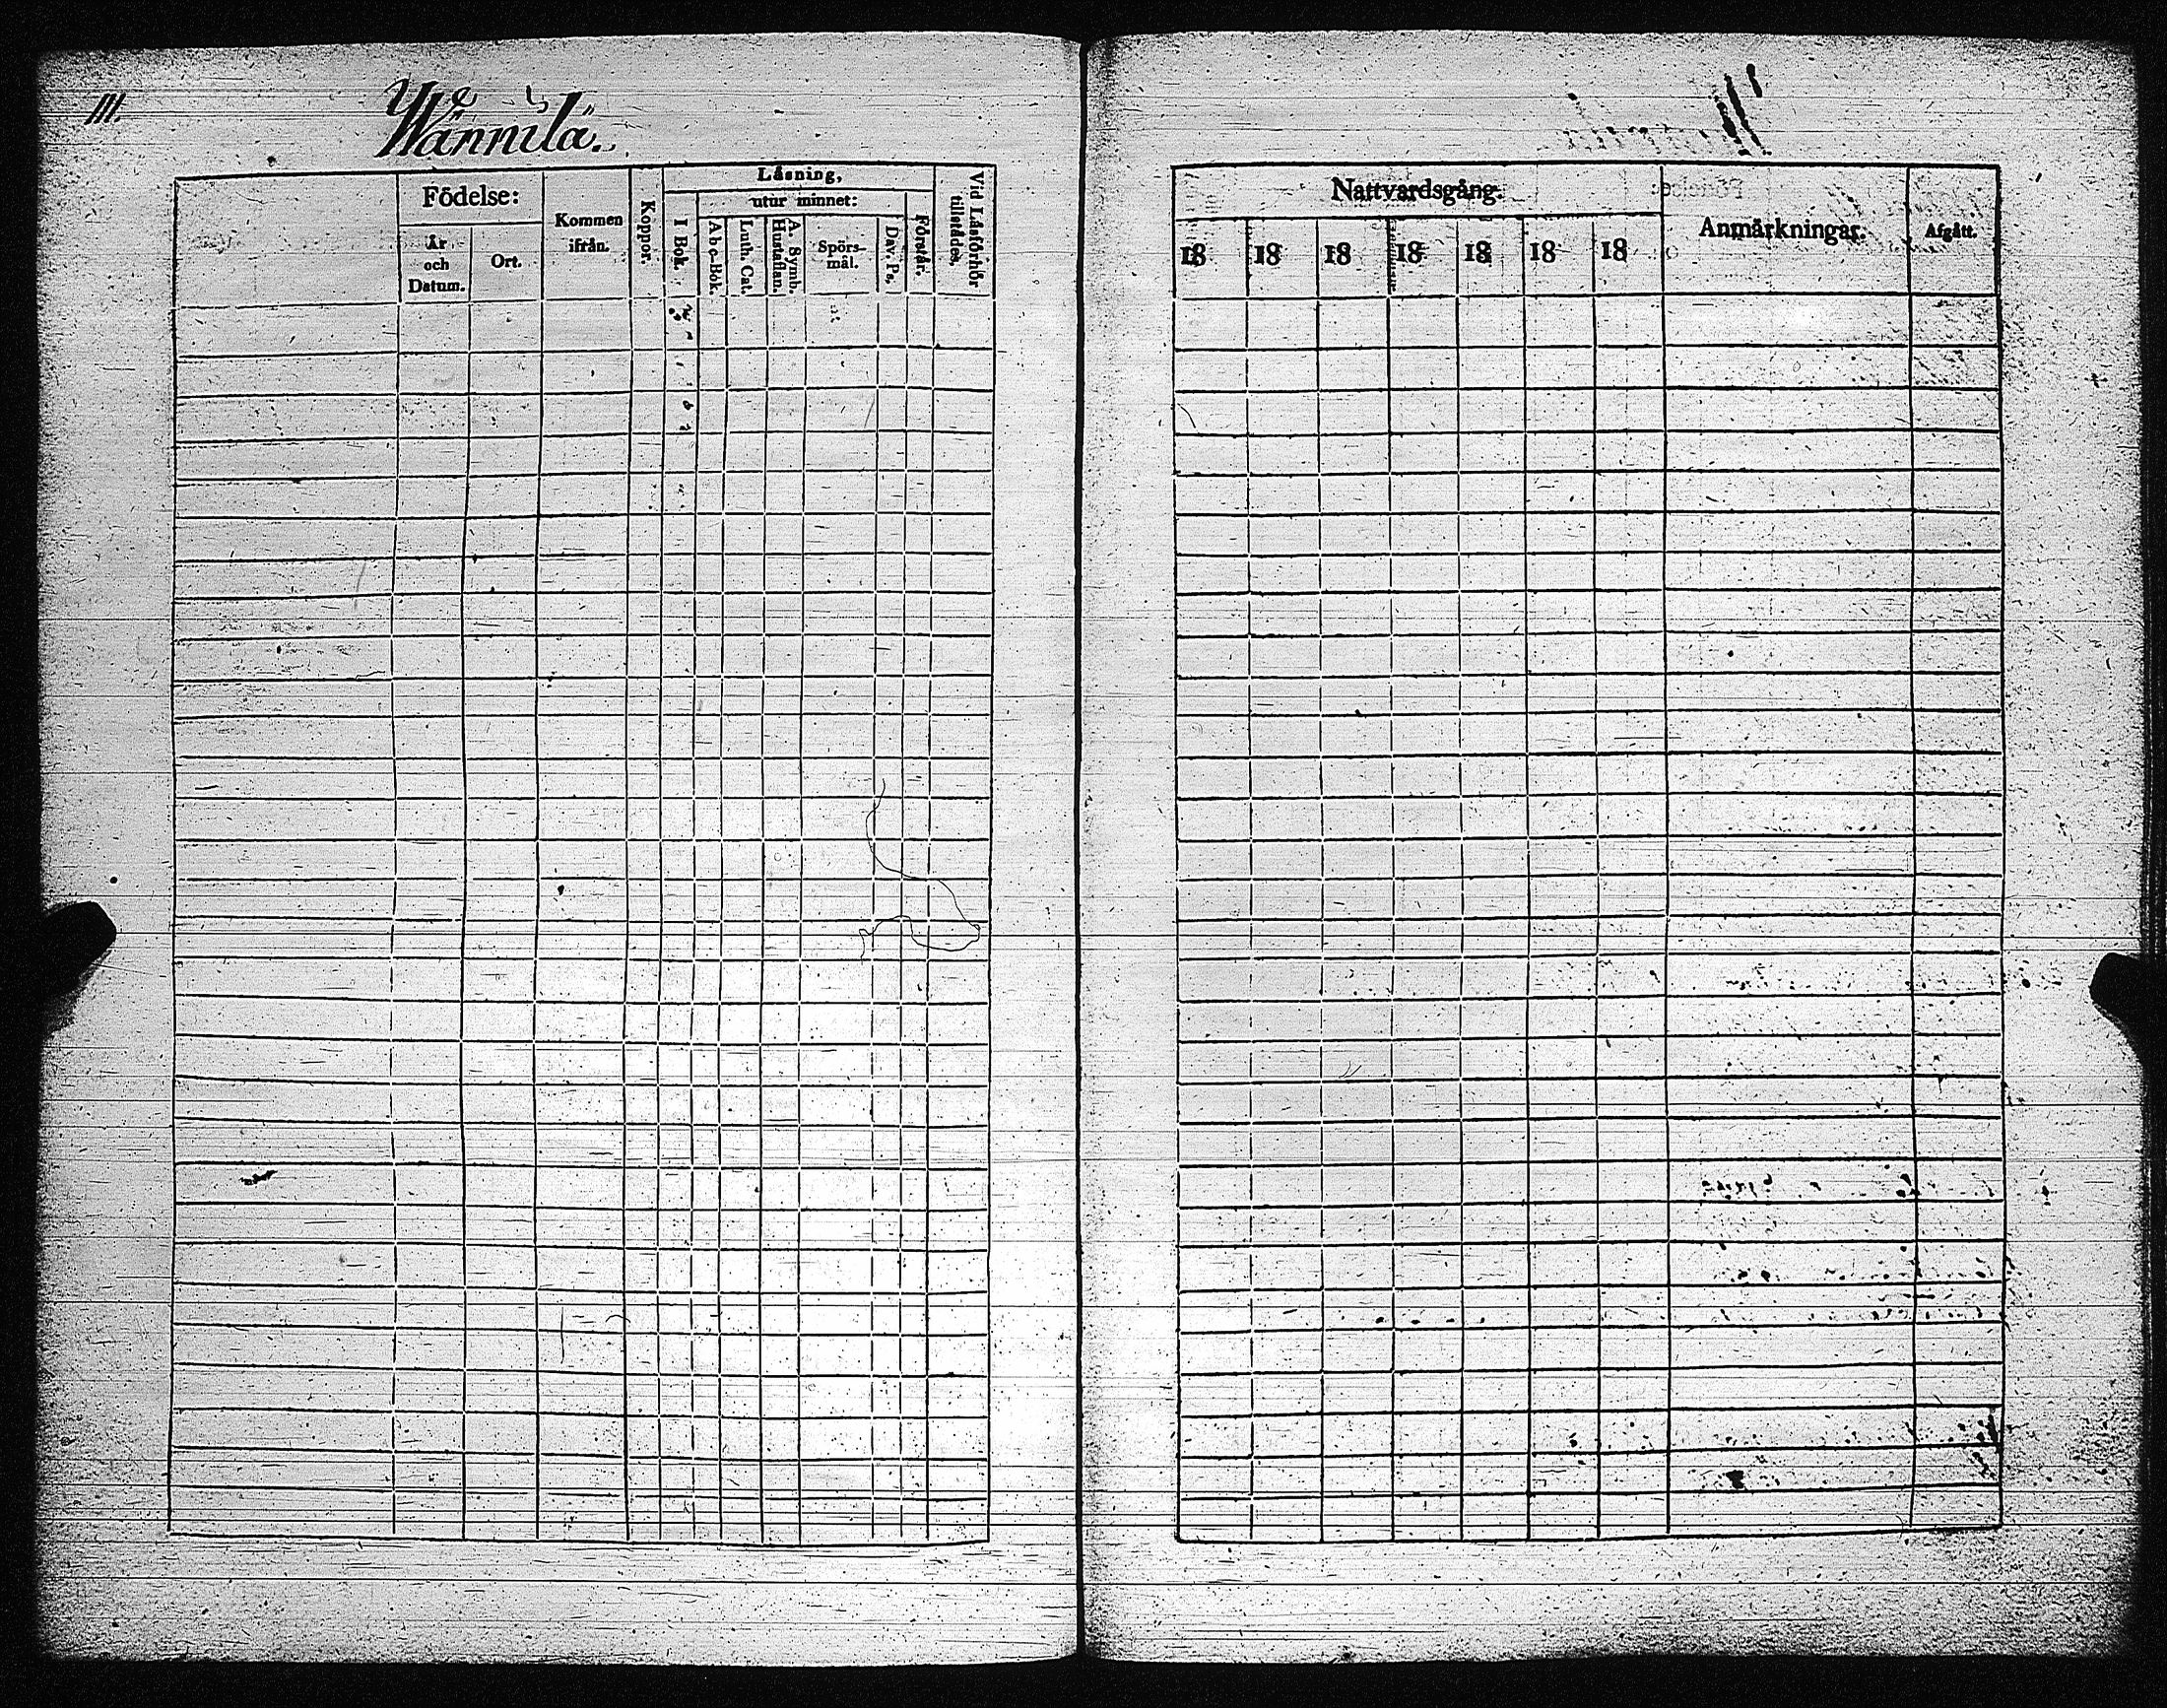 111.
Wännilä.
Födelse:
År och Datum.
Ort.
Kommen ifrån.
Koppor.
Läsning,
I Bok.
utur minnet:
Abc-Bok.
Luth. Cat.
A. Symb. Hustaflan.
Spörsmål.
Dav. Ps.
Förstår.
Vid Läsförhör tillstädes.
Nattvardsgång.
18 18 18 18 18 18 18
Anmärkningar.
Afgått.